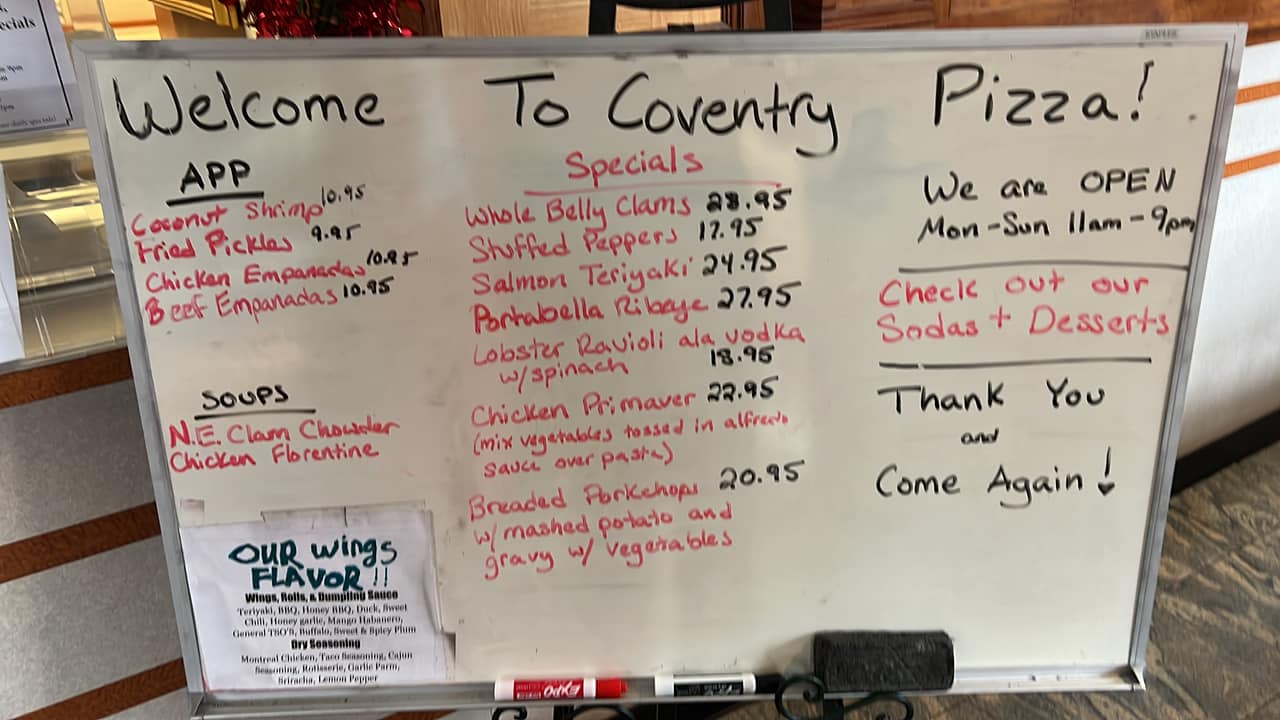 Welcome To Coventry Pizza!
APP
Coconut Shrimp 10.95
Fried Pickles 9.95
Chicken Empanadas 10.95
Beef Empanadas 10.95
SOUPS
N.E. Clam Chowder
Chicken Florentine
OUR wings
FLAVOR!!
Wings, Rolls, & Dumpling Sauce
Teriyaki, BBQ, Honey BBQ, Duck, Sweet
Chili, Honey garlic, Mango Habanero,
General TSO'S, Buffalo, Sweet & Spicy Plum
Dry Seasoning
Montreal Chicken, Taco Seasoning, Cajun
Seasoning, Rotisserie, Garlic Parm,
Sriracha, Lemon Pepper
Specials
Whole Belly Clams 28.95
Stuffed Peppers 17.95
Salmon Teriyaki 24.95
Portabella Ribeye 27.95
Lobster Ravioli ala vodka
w/spinach 18.95
Chicken Primaver 22.95
(mix vegetables tossed in alfredo
sauce over pasta)
Breaded Porkchops 20.95
w/mashed potato and
gravy w/ vegetables
We are OPEN
Mon-Sun 11am-9pm
Check out our
Sodas + Desserts
Thank You
and
Come Again!
EXPO